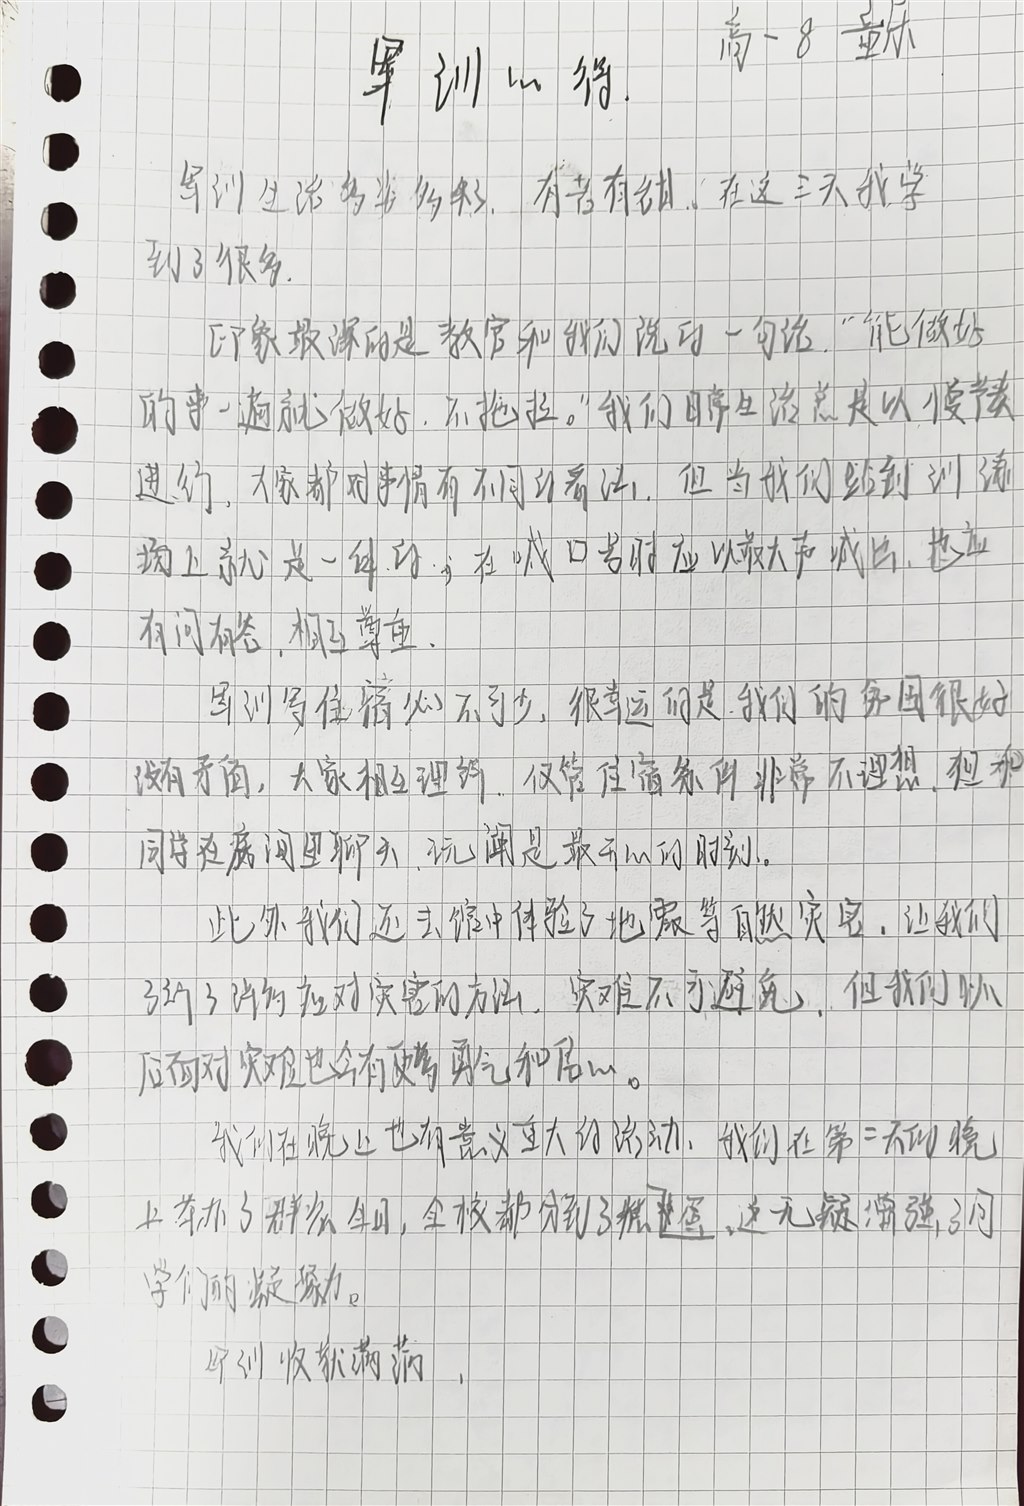 高一8 童乐
军训心得.
军训生活多姿多彩. 有苦有甜. 在这三天我学
到了很多.
印象最深的是教官和我们说的一句话. “能做好
的事一遍就做好. 不拖拉。”我们日常生活总是以慢节奏
进行, 大家都对事情有不同的看法. 但当我们站到训练
场上就是一体的. 在喊口号时应以最大声喊出. 也应
有问有答, 相互尊重.
军训 住宿必不可少. 很幸运的是.我们的氛围很好
没有矛盾, 大家相互理解. 仅管住宿条件非常不理想. 但和
同学在房间里聊天. 玩闹是最开心的时刻.
此外我们还去馆中体验了地震等自然灾害. 让我们
了解了 应对灾害的方法. 灾难不可避免. 但我们以
后面对灾难也会有更多勇气和信心。
我们在晚上也有意义重大的活动. 我们在第二天的晚
上举办了 生日, 全校都分到了 蛋 . 这无疑增强了同
学们的凝聚力。
军训收获满满.